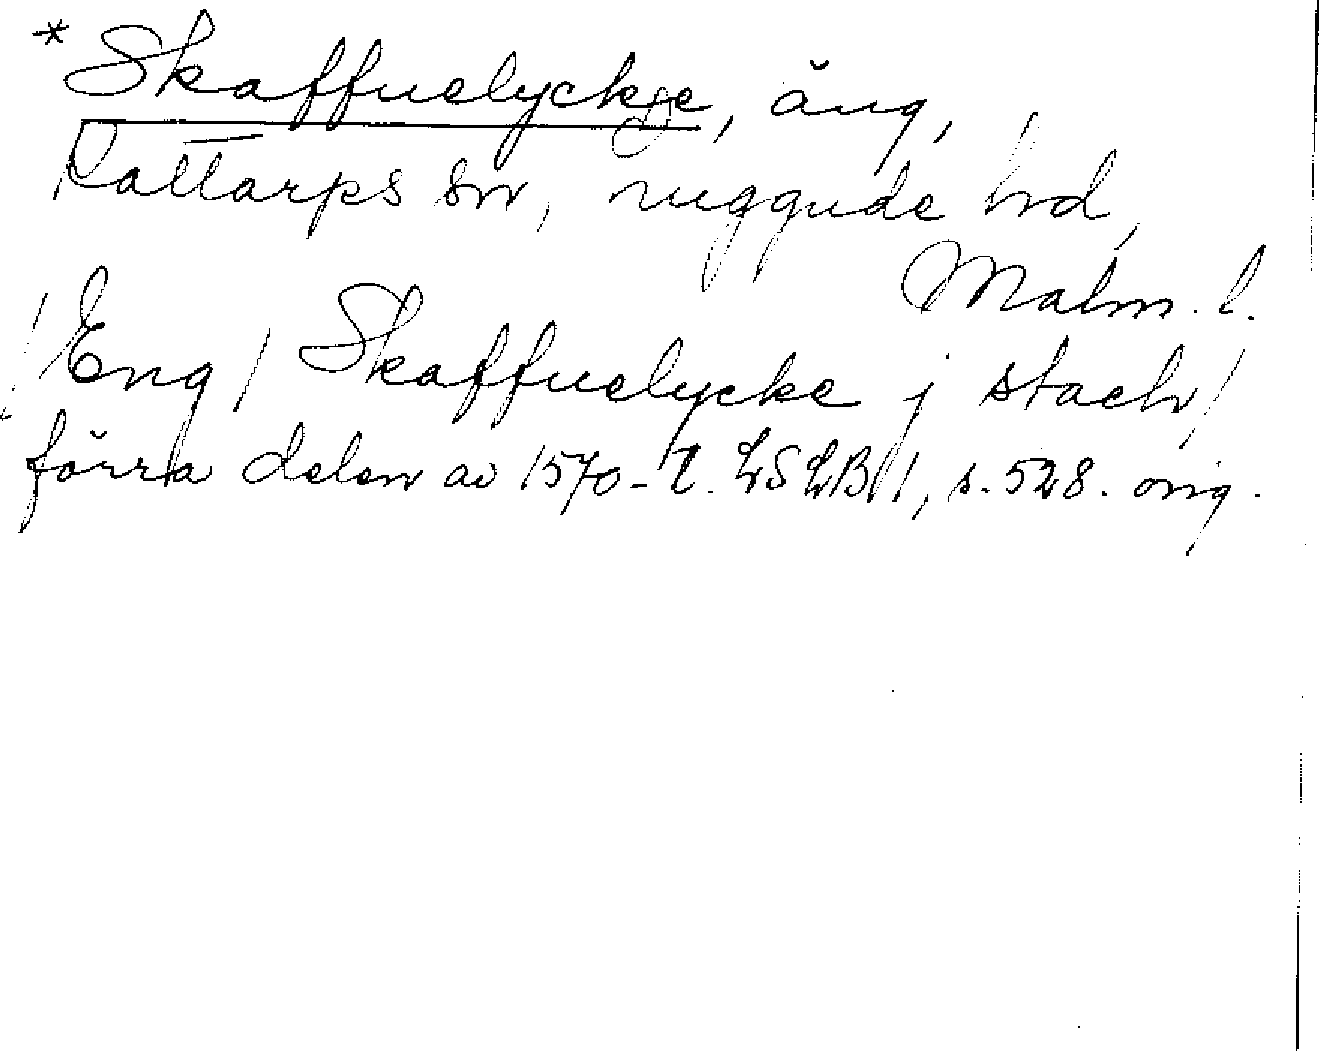 *Skaffuelyckge, äng,
Kattarps sn, Luggude hrd,
Malm. l.
/Eng/ Skaffuelycke j stach/
förra delen av 1570-t. LSLB 1, s. 528. orig.